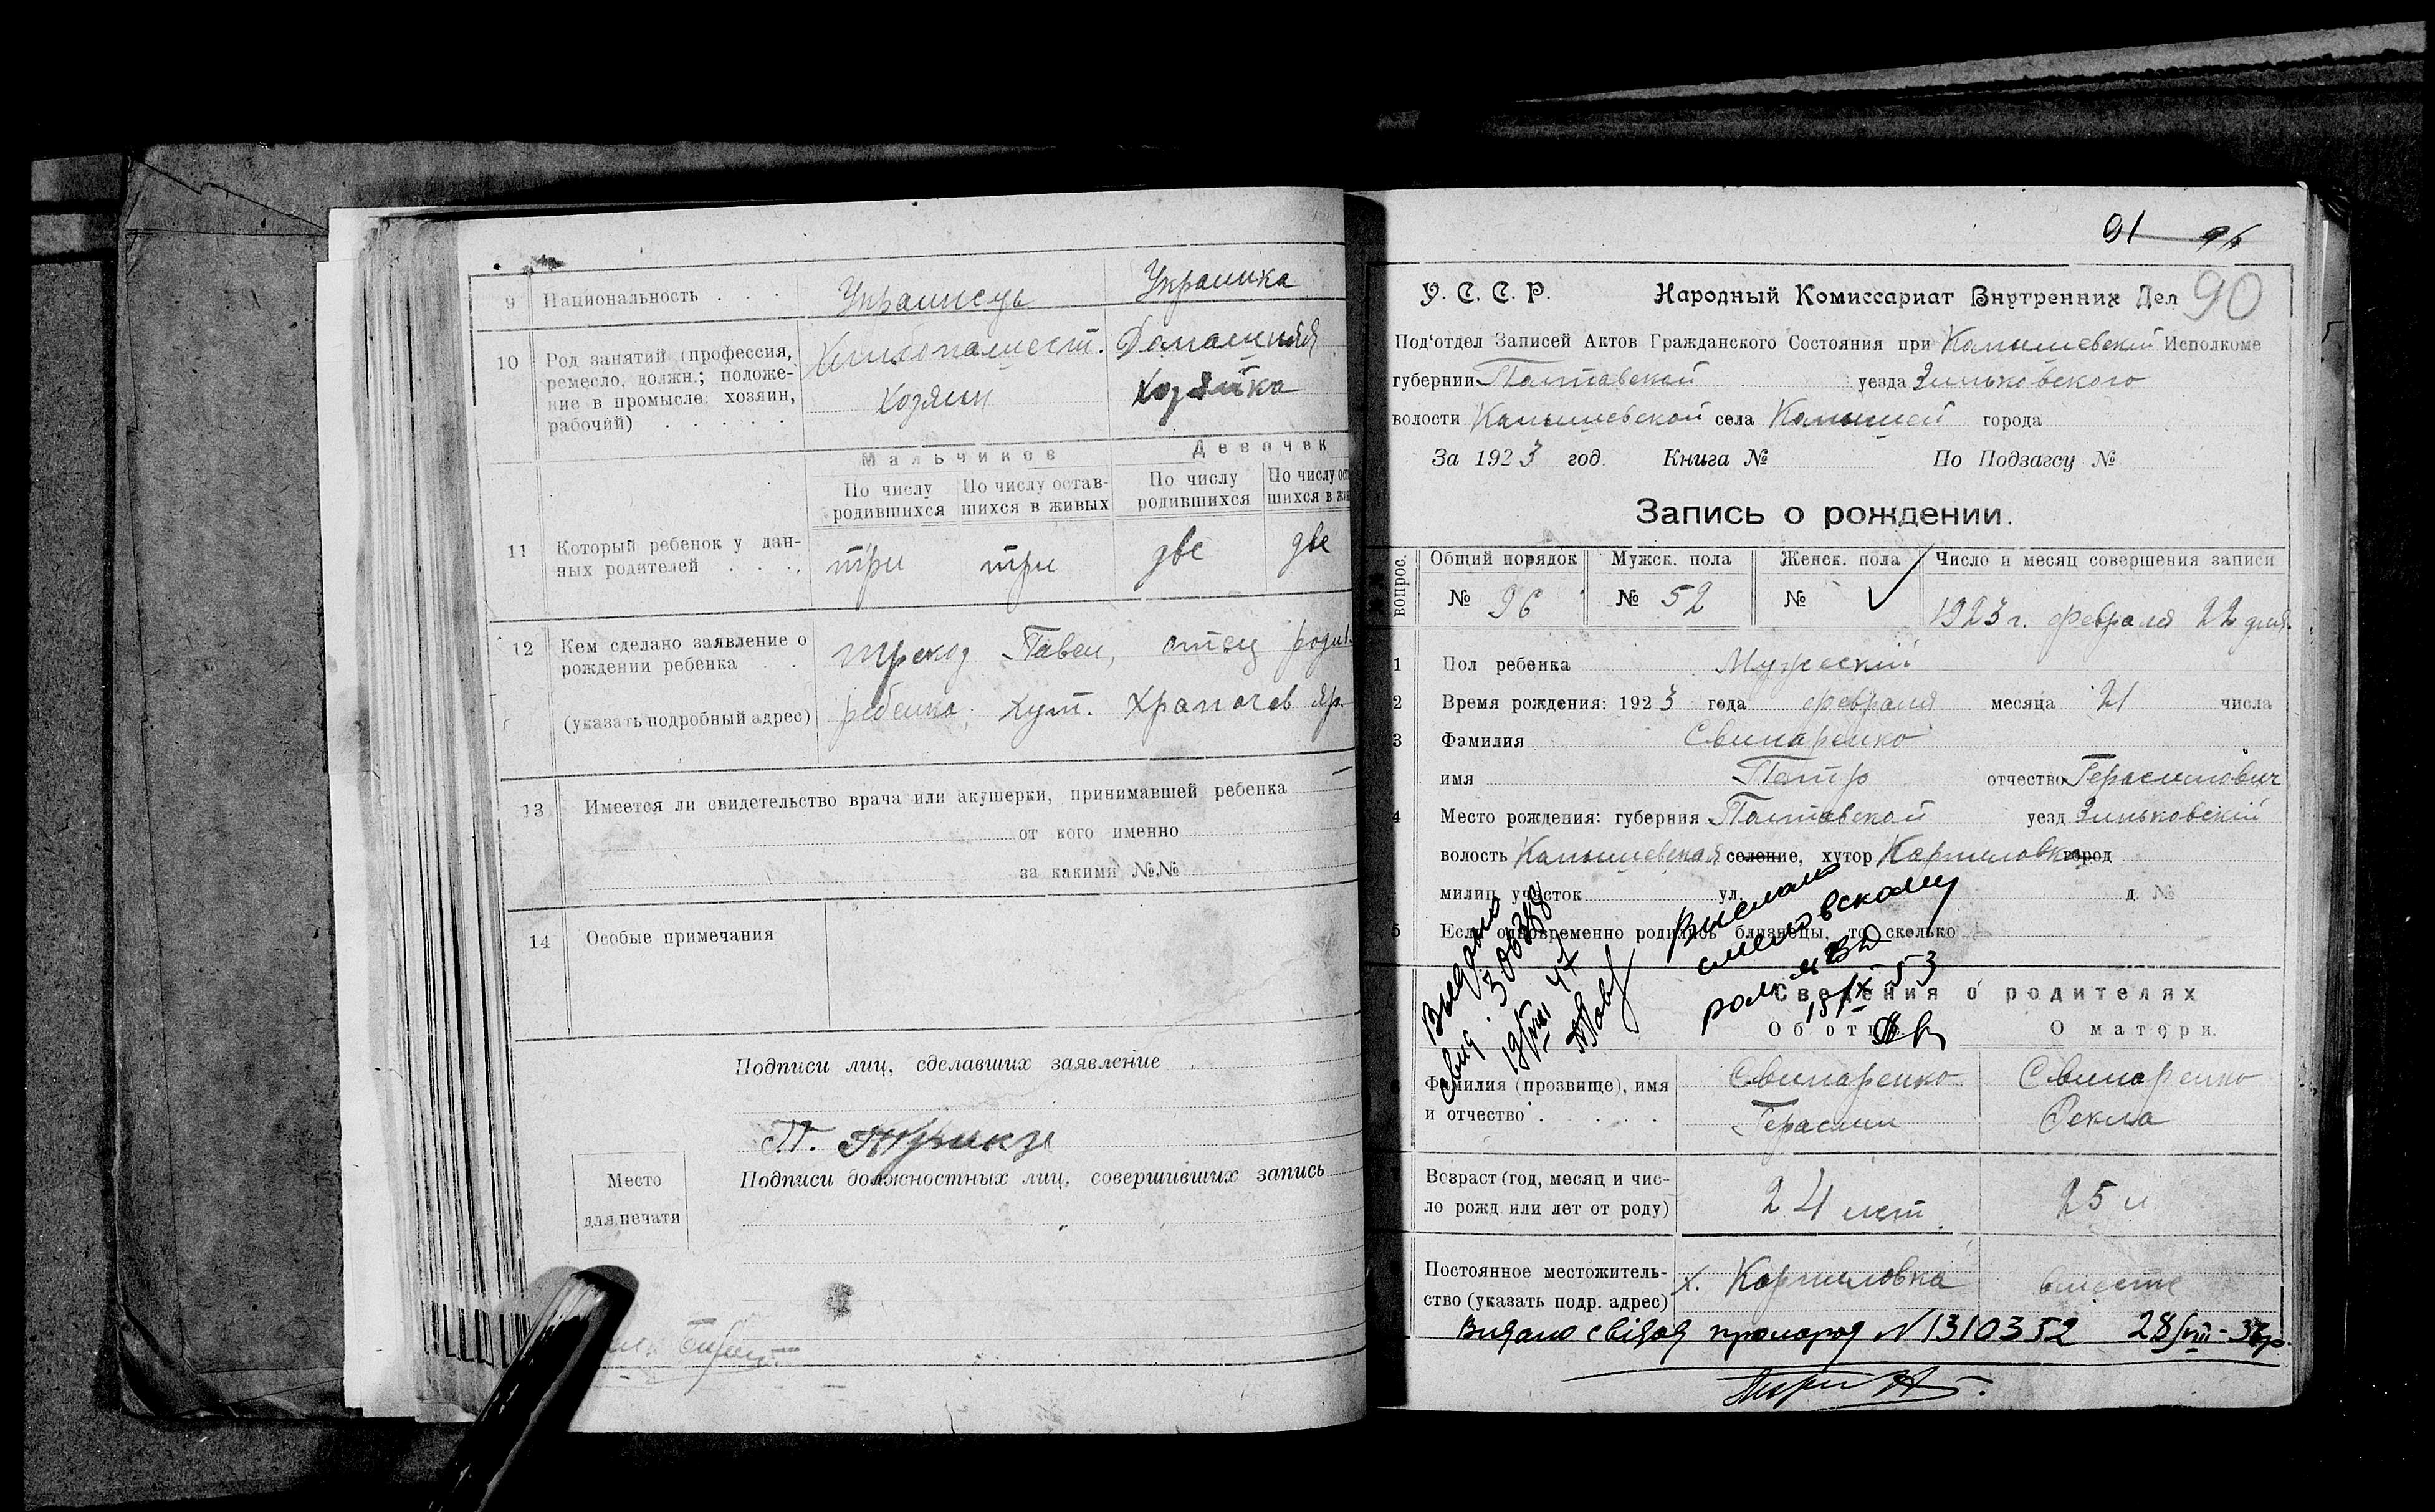 9 Национальность . . . Украинець Украинка
10 Род занятий (профессия, Хлебопашест. Домашняя
ремесло, должн.; положе-
ние в промысле: хозяин, хозяин хозяйка
рабочий) . . . . .
Мальчиков Девочек
По числу По числу остав- По числу По числу ос
родившихся шихся в живых родившихся шихся в жи
11 Который ребенок у дан- три три две две
ных родителей . . .
12 Кем сделано заявление о Павел, отец
рождении ребенка . .
(указать подробный адрес) ребенка, хут.
13 Имеется ли свидетельство врача или акушерки, принимавшей ребенка —
от кого именно
за какими №№
14 Особые примечания
Подписи лиц, сделавших заявление
П.
Место Подписи должностных лиц, совершивших запись
для печати
91
У. С. С. Р. Народный Комиссариат Внутренних Дел 90
Под'отдел Записей Актов Гражданского Состояния при Камышевский Исполкоме
губернии Полтавской уезда Зиньковского
волости Камышевской села Камышей города
За 1923 год. Книга № По Подзагсу №
Запись о рождении.
вопрос. Общий порядок Мужск. пола Женск. пола Число и месяц совершения записи
№ 96 № 52 № 1923 г. февраля 22 дня.
1 Пол ребенка Мужеский
2 Время рождения: 1923 года февраля месяца 21 числа
3 Фамилия Свинаренко
имя Петр отчество Герасимович
4 Место рождения: губерния Полтавской уезд Зиньковскій
волость Камышевская селение, хутор Кармиловка город
милиц. участок ул. д. №
5 Если одновременно родились близнецы, то сколько
Выдано
свид.
19/VIII 47
Выслано
рай МВД
15/IX 53
Сведения о родителях
Об отце О матери
6 Фамилия (прозвище), имя Свинаренко Свинаренко
и отчество . . . . . Герасим Фекла
Возраст (год, месяц и чис- 24 лет 25 л
ло рожд. или лет от роду)
Постоянное местожитель- х. Кармиловка вместе
ство (указать подр. адрес)
Видано свідоц про народ N 1310352 28/VIII-